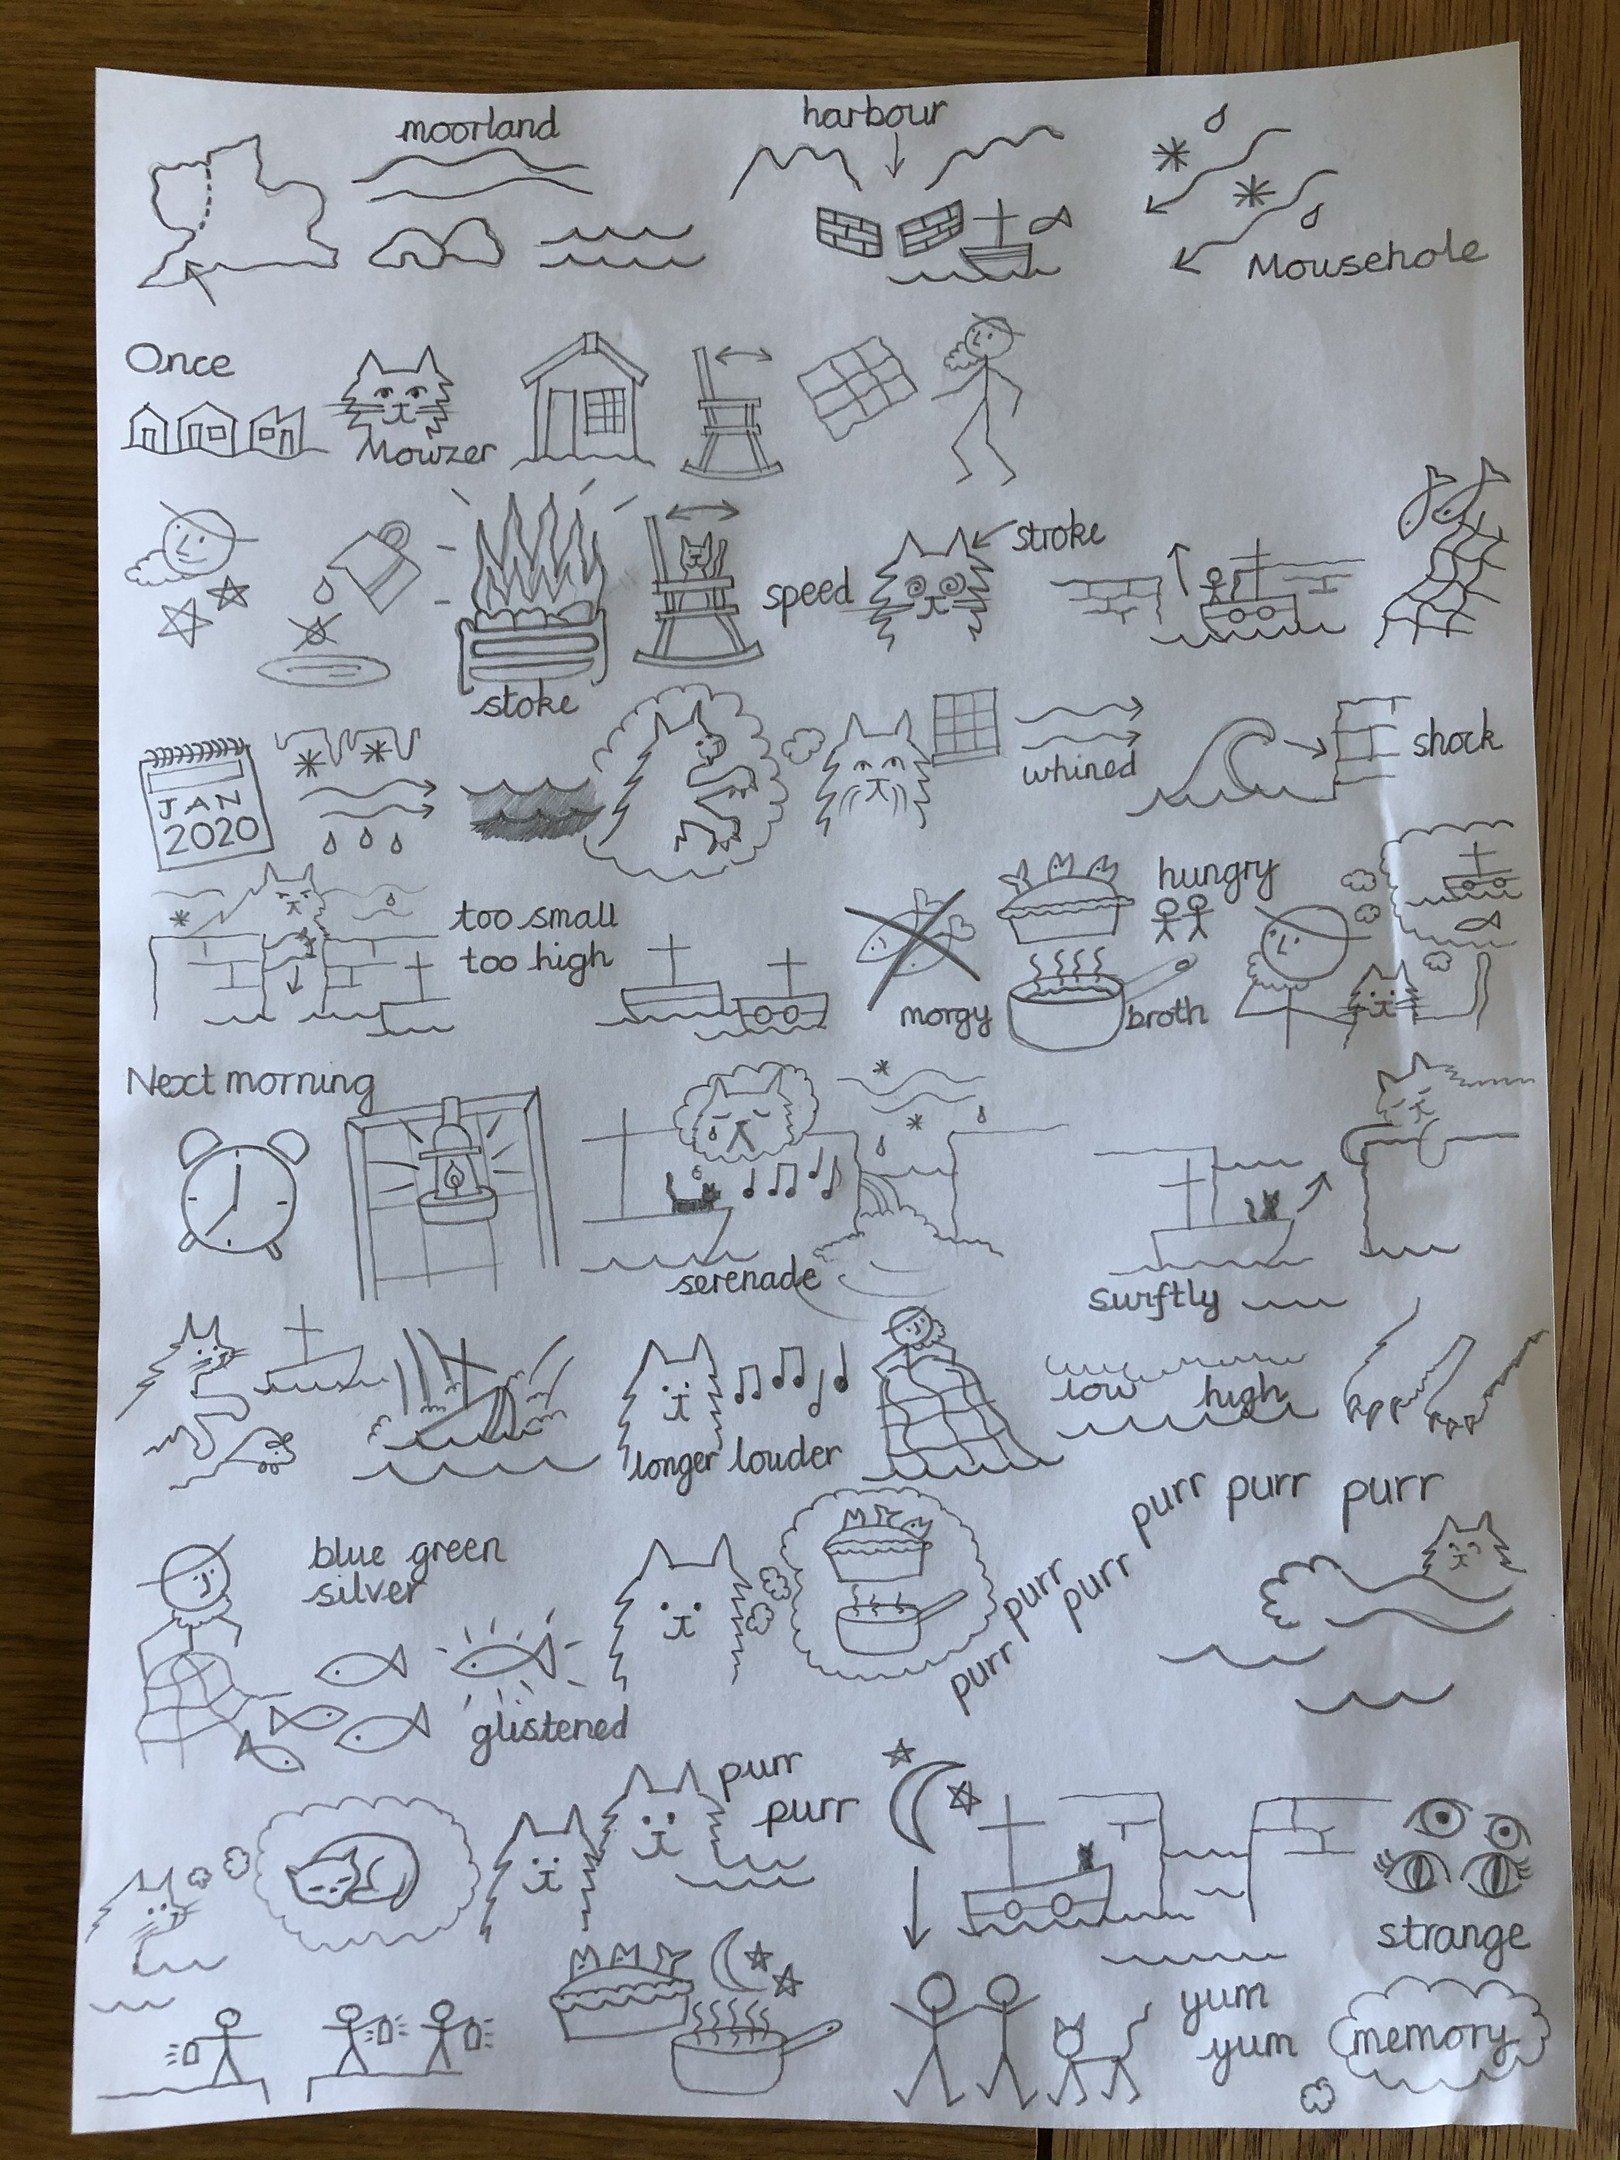 moorland
harbour
Mousehole
Once
Mowzer
speed
stroke
stoke
JAN
2020
whined
shock
too small
too high
hungry
morgy
broth
Next morning
serenade
swiftly
low high
longer louder
purr purr purr
blue green
silver
purr purr
purr
glistened
purr
purr
strange
yum
yum
memory